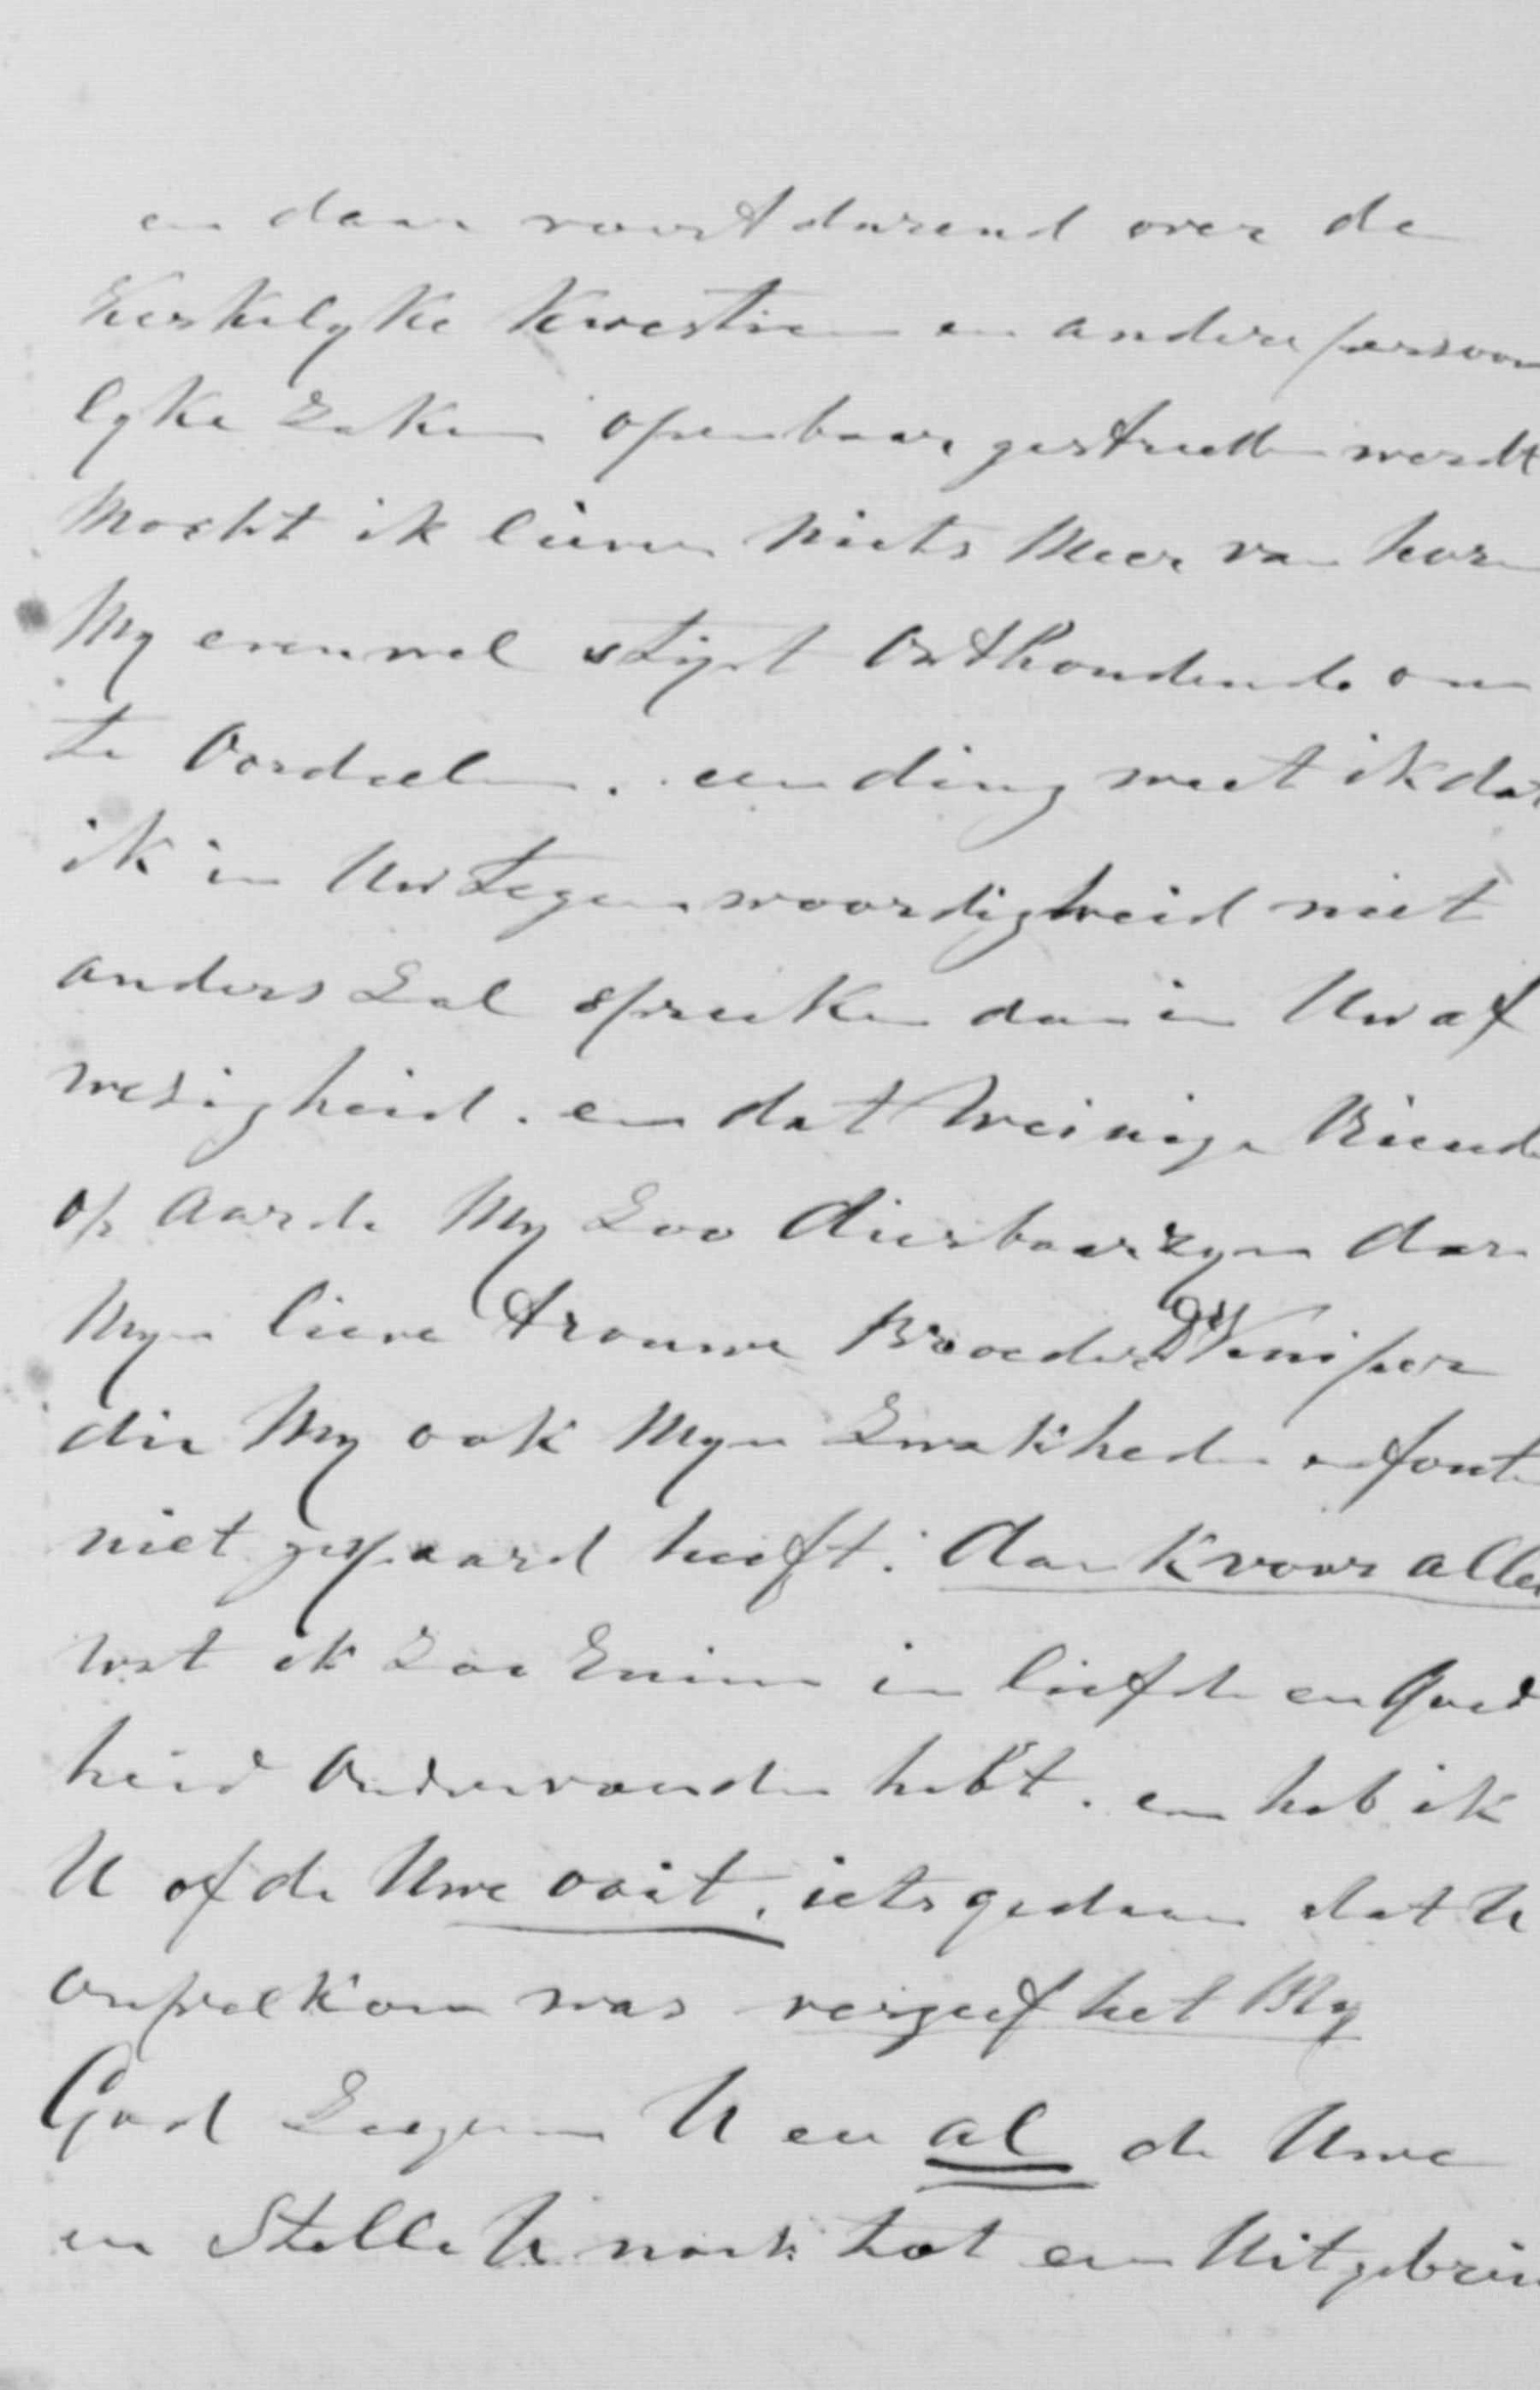 en daar voortdurend over de
Kerkelyke Kwestien en andere persoon
lyke Zaken openbaar gestreden werdt
Mocht ik liever Niets Meer van hore
My evenwel stipt Onthoudende om
te Oordeelen. een ding weet ik dat
ik in Uw tegenwoordigheid niet
anders Zal spreeken dan in Uw af
wezigheid. en dat Weinige Vriend
op Aarde My Zoo dierbaar zyn dan
Myn lieve trouwe Broeder Dr Kuiper
die My ook Myn Zwakheden en fout
niet gespaard heeft. dank voor alles
wat ik Zoo in liefde en Goed
heid Ondervonden hebt. en heb ik
U of de Uwe ooit. iets gedaan dat U
onwelkom was vergeef het My
God Zegene U en al de Uwe
en Stelle U noch tot een Uitgebrei